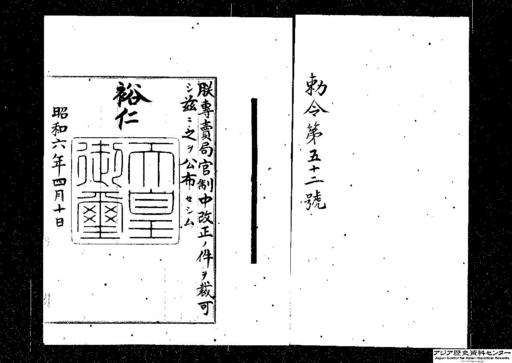 勅令第五十二號
朕專賣局官制中改正ノ件ヲ裁可
シ茲ニ之ヲ公布セシム
裕仁
天皇御璽
昭和六年四月十日
アジア歴史資料センター
Japan Center for Asian Historical Records